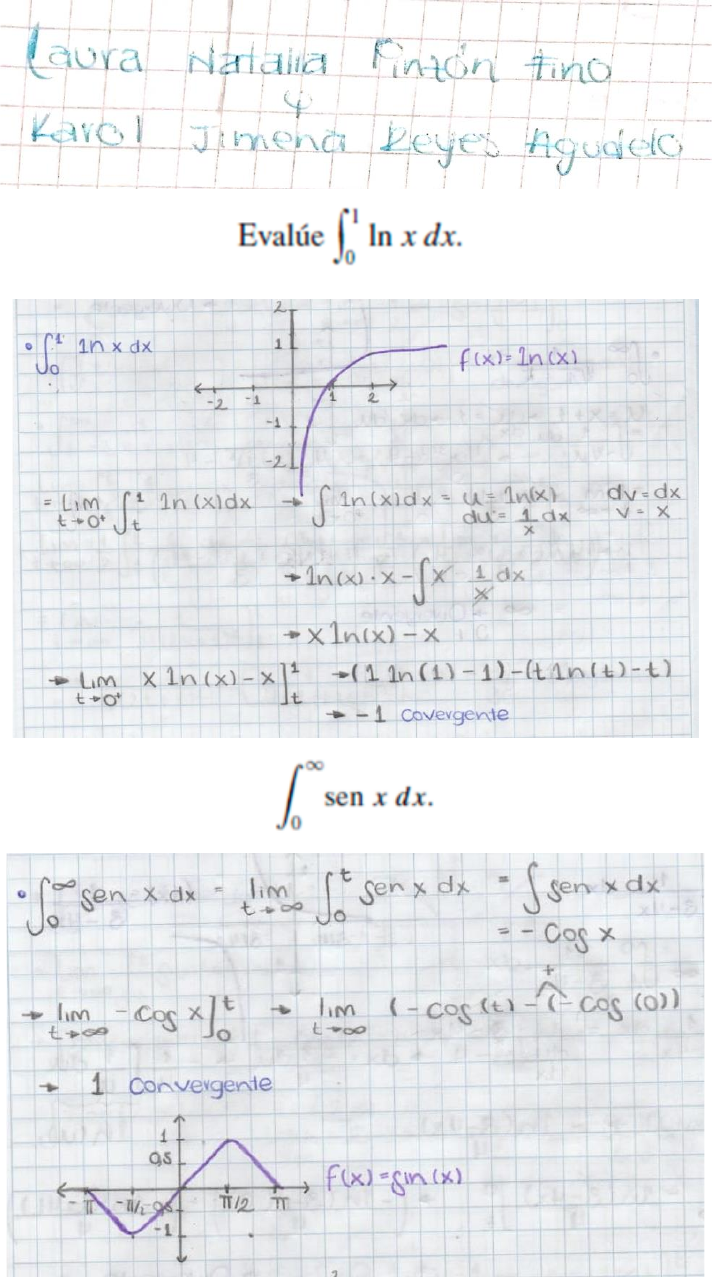 Laura Natalia Pinzón Tino
y
Karol Jimena Reyes Agudelo
Evalúe ∫₀¹ ln x dx.
• ∫₀¹ ln x dx
2
1
-2 -1 1 2
-1
-2
f(x)= ln(x)
= Lim t→0⁺ ∫ₜ¹ ln(x)dx → ∫ ln(x)dx = u = ln(x) dv = dx
du = 1/x dx v = x
→ ln(x) · x - ∫ x 1/x dx
→ x ln(x) - x
→ Lim t→0⁺ x ln(x) - x]ₜ¹ → (1 ln(1) - 1) - (t ln(t) - t)
→ -1 covergente
∫₀^∞ sen x dx.
• ∫₀^∞ sen x dx = lim t→∞ ∫₀ᵗ sen x dx = ∫ sen x dx
= - cos x
+
→ lim t→∞ - cos x]₀ᵗ → lim t→∞ (- cos (t) - (- cos (0))
→ 1 Convergente
1
0,5
-π -π/2 π/2 π
-1
f(x) = sin(x)